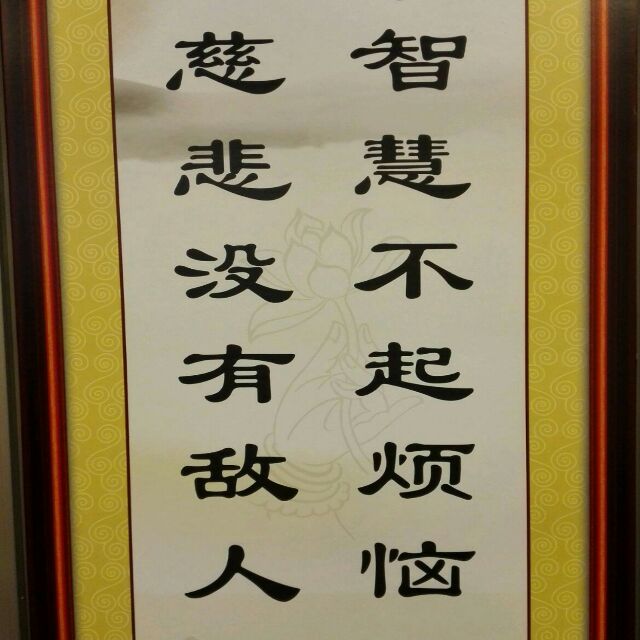 智慧不起烦恼
慈悲没有敌人